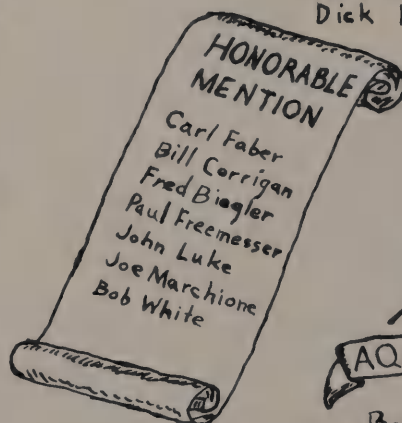 Dick
HONORABLE
MENTION
Carl Faber
Bill Corrigan
Fred Biegler
Paul Freemesser
John Luke
Joe Marchione
Bob White
AQ